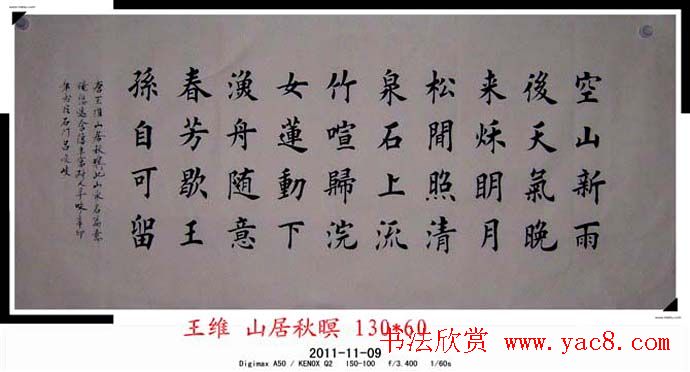 空山新雨
後天氣晚
来秌明月
松間照清
泉石上流
竹喧歸浣
女蓮動下
漁舟随意
春芳歇王
孫自可留
唐王維山居秋暝此山水名篇意
王维 山居秋暝 130*60
2011-11-09
Digimax A50 / KENOX Q2 ISO-100 f/3.400 1/60s
书法欣赏 www.yac8.com